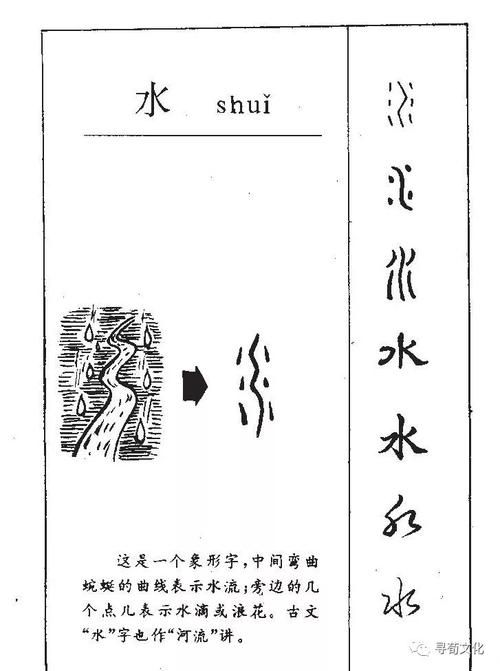 水 shuǐ
这是一个象形字，中间弯曲
蜿蜒的曲线表示水流；旁边的几
个点儿表示水滴或浪花。古文
“水”字也作“河流”讲。
水
水
水
水
水
水
水
寻荀文化